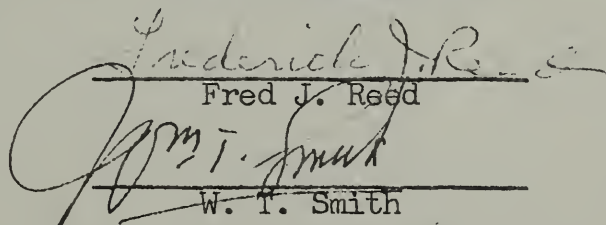 Frederick J. Reed
Fred J. Reed
Wm T. Smith
W. T. Smith